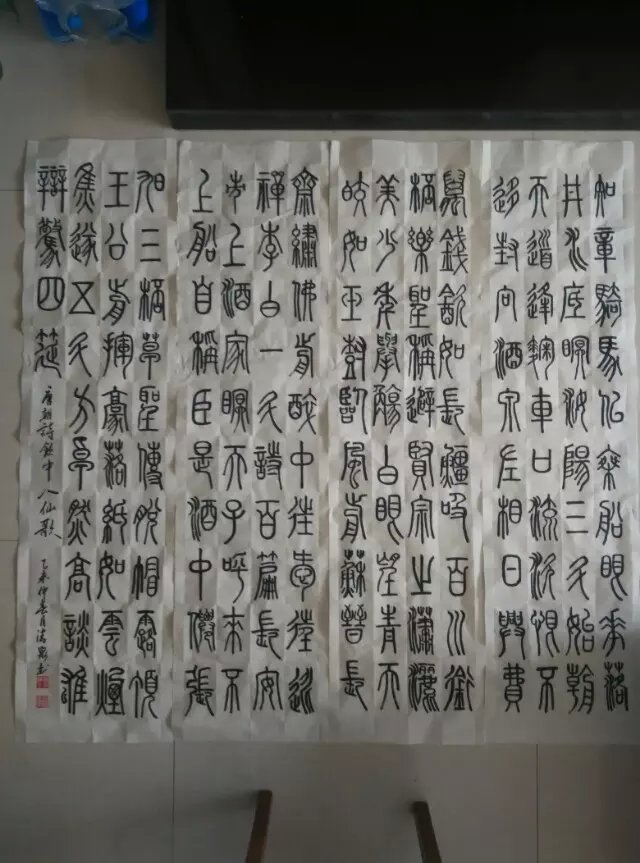 知章騎馬仙乘船眼花落
井水底瞑汝陽三斗始朝
天道逢麴車口流涎恨不
移封向酒泉左相日興費
萬錢飲如長鯨吸百川銜
杯樂聖稱避賢宗之瀟灑
美少年舉觴白眼望青天
皎如玉樹臨風前蘇晉長
齋繡佛前醉中往往愛逃
禪李白一斗詩百篇長安
市上酒家瞑天子呼來不
上船自稱臣是酒中僊張
旭三杯草聖傳脫帽露頂
王公前揮豪落紙如雲煙
焦遂五斗方卓然高談雄
辯驚四筵
唐朝詩飲中八仙歌
乙未仲春月